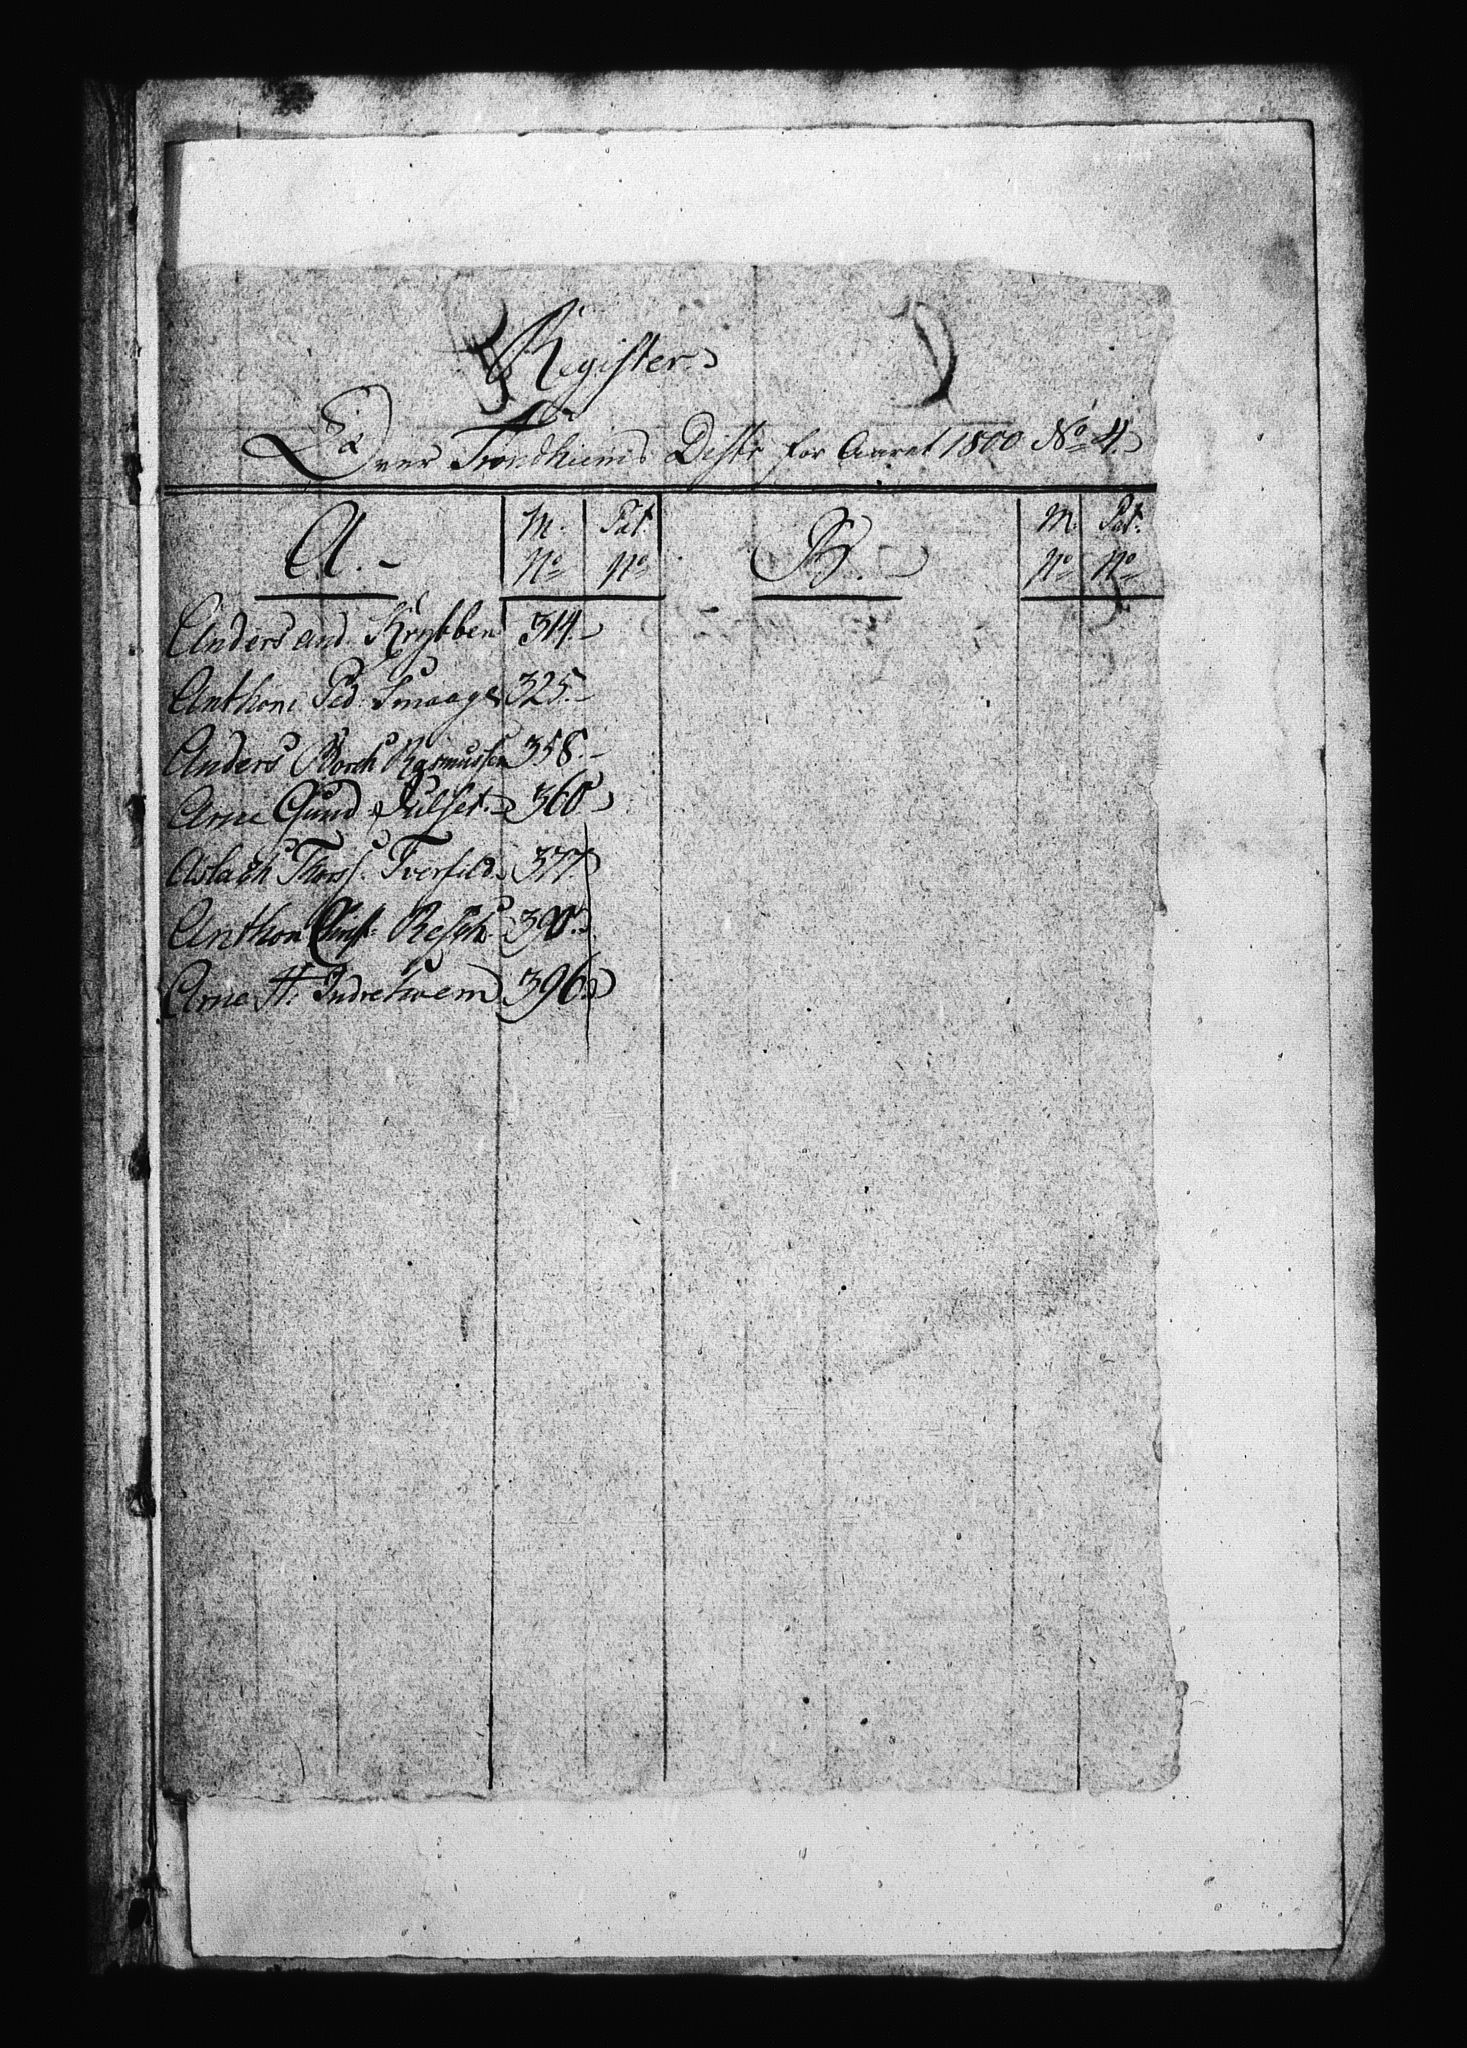 Register
Over Trondhiems Distr for Aaret 1800 No 4.
A. M. No Pat. No B. M. No Pat. No
Anders And. Krybben 314.
Anthoni Ped. Smaage 325.
Anders Borch Rasmussen 358.
Arne Gund. 360
Aslach Thorss. Tverfeld 377
Anthon 390.
Arne H. Indrekvem 396.